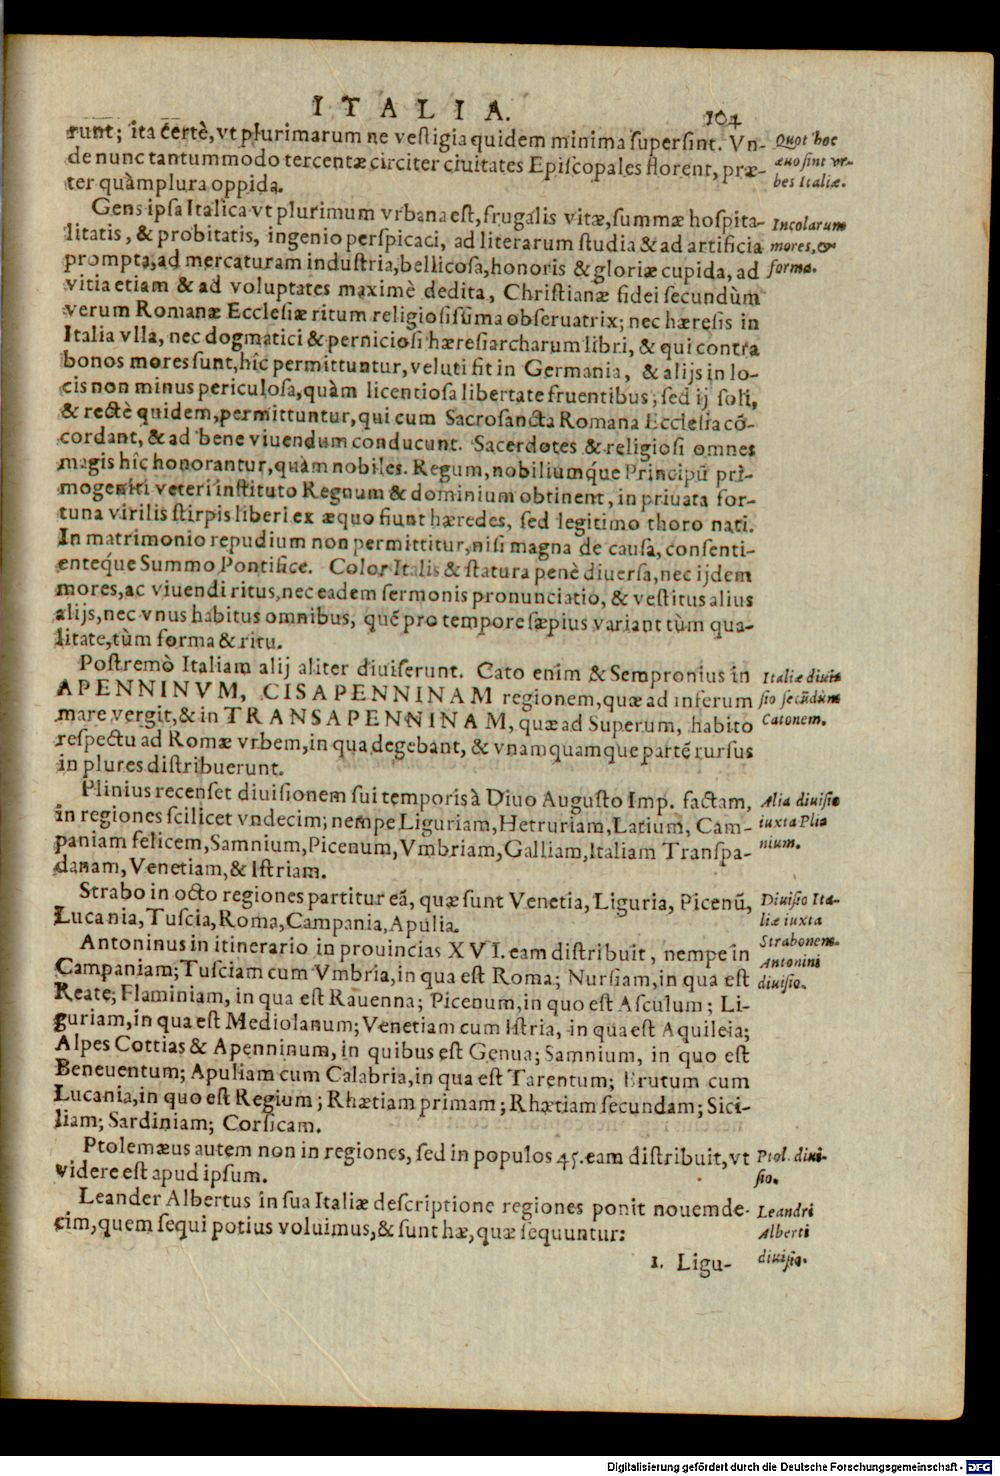 ITALIA. 104
runt; ita certè, vt plurimarum ne vestigia quidem minima supersint. Vn-
de nunc tantummodo tercentæ circiter ciuitates Episcopales florent, præ-
ter quàmplura oppida.
Quot hoc
æuo sint vr-
bes Italiæ.
Gens ipsa Italica vt plurimum vrbana est, frugalis vitæ, summæ hospita-
litatis, & probitatis, ingenio perspicaci, ad literarum studia & ad artificia
prompta, ad mercaturam industria, bellicosa, honoris & gloriæ cupida, ad
vitia etiam & ad voluptates maximè dedita, Christianæ fidei secundùm
verum Romanæ Ecclesiæ ritum religiosissima obseruatrix; nec hæresis in
Italia vlla, nec dogmatici & perniciosi hæresiarcharum libri, & qui contra
bonos mores sunt, hîc permittuntur, veluti fit in Germania, & alijs in lo-
cis non minus periculosa, quàm licentiosa libertate fruentibus; sed ij soli,
& rectè quidem, permittuntur, qui cum Sacrosancta Romana Ecclesia cō-
cordant, & ad bene viuendum conducunt. Sacerdotes & religiosi omnes
magis hîc honorantur, quàm nobiles. Regum, nobiliumq́ue Principū pri-
mogeniti veteri instituto Regnum & dominium obtinent, in priuata for-
tuna virilis stirpis liberi ex æquo fiunt hæredes, sed legitimo thoro nati.
In matrimonio repudium non permittitur, nisi magna de causa, consenti-
enteq́ue Summo Pontifice. Color Italis & statura penè diuersa, nec ijdem
mores, ac viuendi ritus, nec eadem sermonis pronunciatio, & vestitus alius
alijs, nec vnus habitus omnibus, quē pro tempore sæpius variant tùm qua-
litate, tùm forma & ritu.
Incolarum
mores, &
forma.
Postremò Italiam alij aliter diuiserunt. Cato enim & Sempronius in
APENNINVM, CISAPENNINAM regionem, quæ ad inferum
mare vergit, & in TRANSAPENNINAM, quæ ad Superum, habito
respectu ad Romæ vrbem, in qua degebant, & vnamquamque partē rursus
in plures distribuerunt.
Italiæ diui
sio secūdum
Catonem.
Plinius recenset diuisionem sui temporis à Diuo Augusto Imp. factam,
in regiones scilicet vndecim; nempe Liguriam, Hetruriam, Latium, Cam-
paniam felicem, Samnium, Picenum, Vmbriam, Galliam, Italiam Transpa-
danam, Venetiam, & Istriam.
Alia diuisio
iuxta Pli
nium.
Strabo in octo regiones partitur eā, quæ sunt Venetia, Liguria, Picenū,
Lucania, Tuscia, Roma, Campania, Apulia.
Diuisio Ita-
liæ iuxta
Strabonem.
Antoninus in itinerario in prouincias XVI. eam distribuit, nempe in
Campaniam; Tusciam cum Vmbria, in qua est Roma; Nursiam, in qua est
Reate; Flaminiam, in qua est Rauenna; Picenum, in quo est Asculum; Li-
guriam, in qua est Mediolanum; Venetiam cum Istria, in qua est Aquileia;
Alpes Cottias & Apenninum, in quibus est Genua; Samnium, in quo est
Beneuentum; Apuliam cum Calabria, in qua est Tarentum; Brutum cum
Lucania, in quo est Regium; Rhætiam primam; Rhætiam secundam; Sici-
liam; Sardiniam; Corsicam.
Antonini
diuisio.
Ptolemæus autem non in regiones, sed in populos 45. eam distribuit, vt
videre est apud ipsum.
Ptol. diui-
sio.
Leander Albertus in sua Italiæ descriptione regiones ponit nouemde-
cim, quem sequi potius voluimus, & sunt hæ, quæ sequuntur:
Leandri
Alberti
diuisio.
1. Ligu-
Digitalisierung gefördert durch die Deutsche Forschungsgemeinschaft - DFG